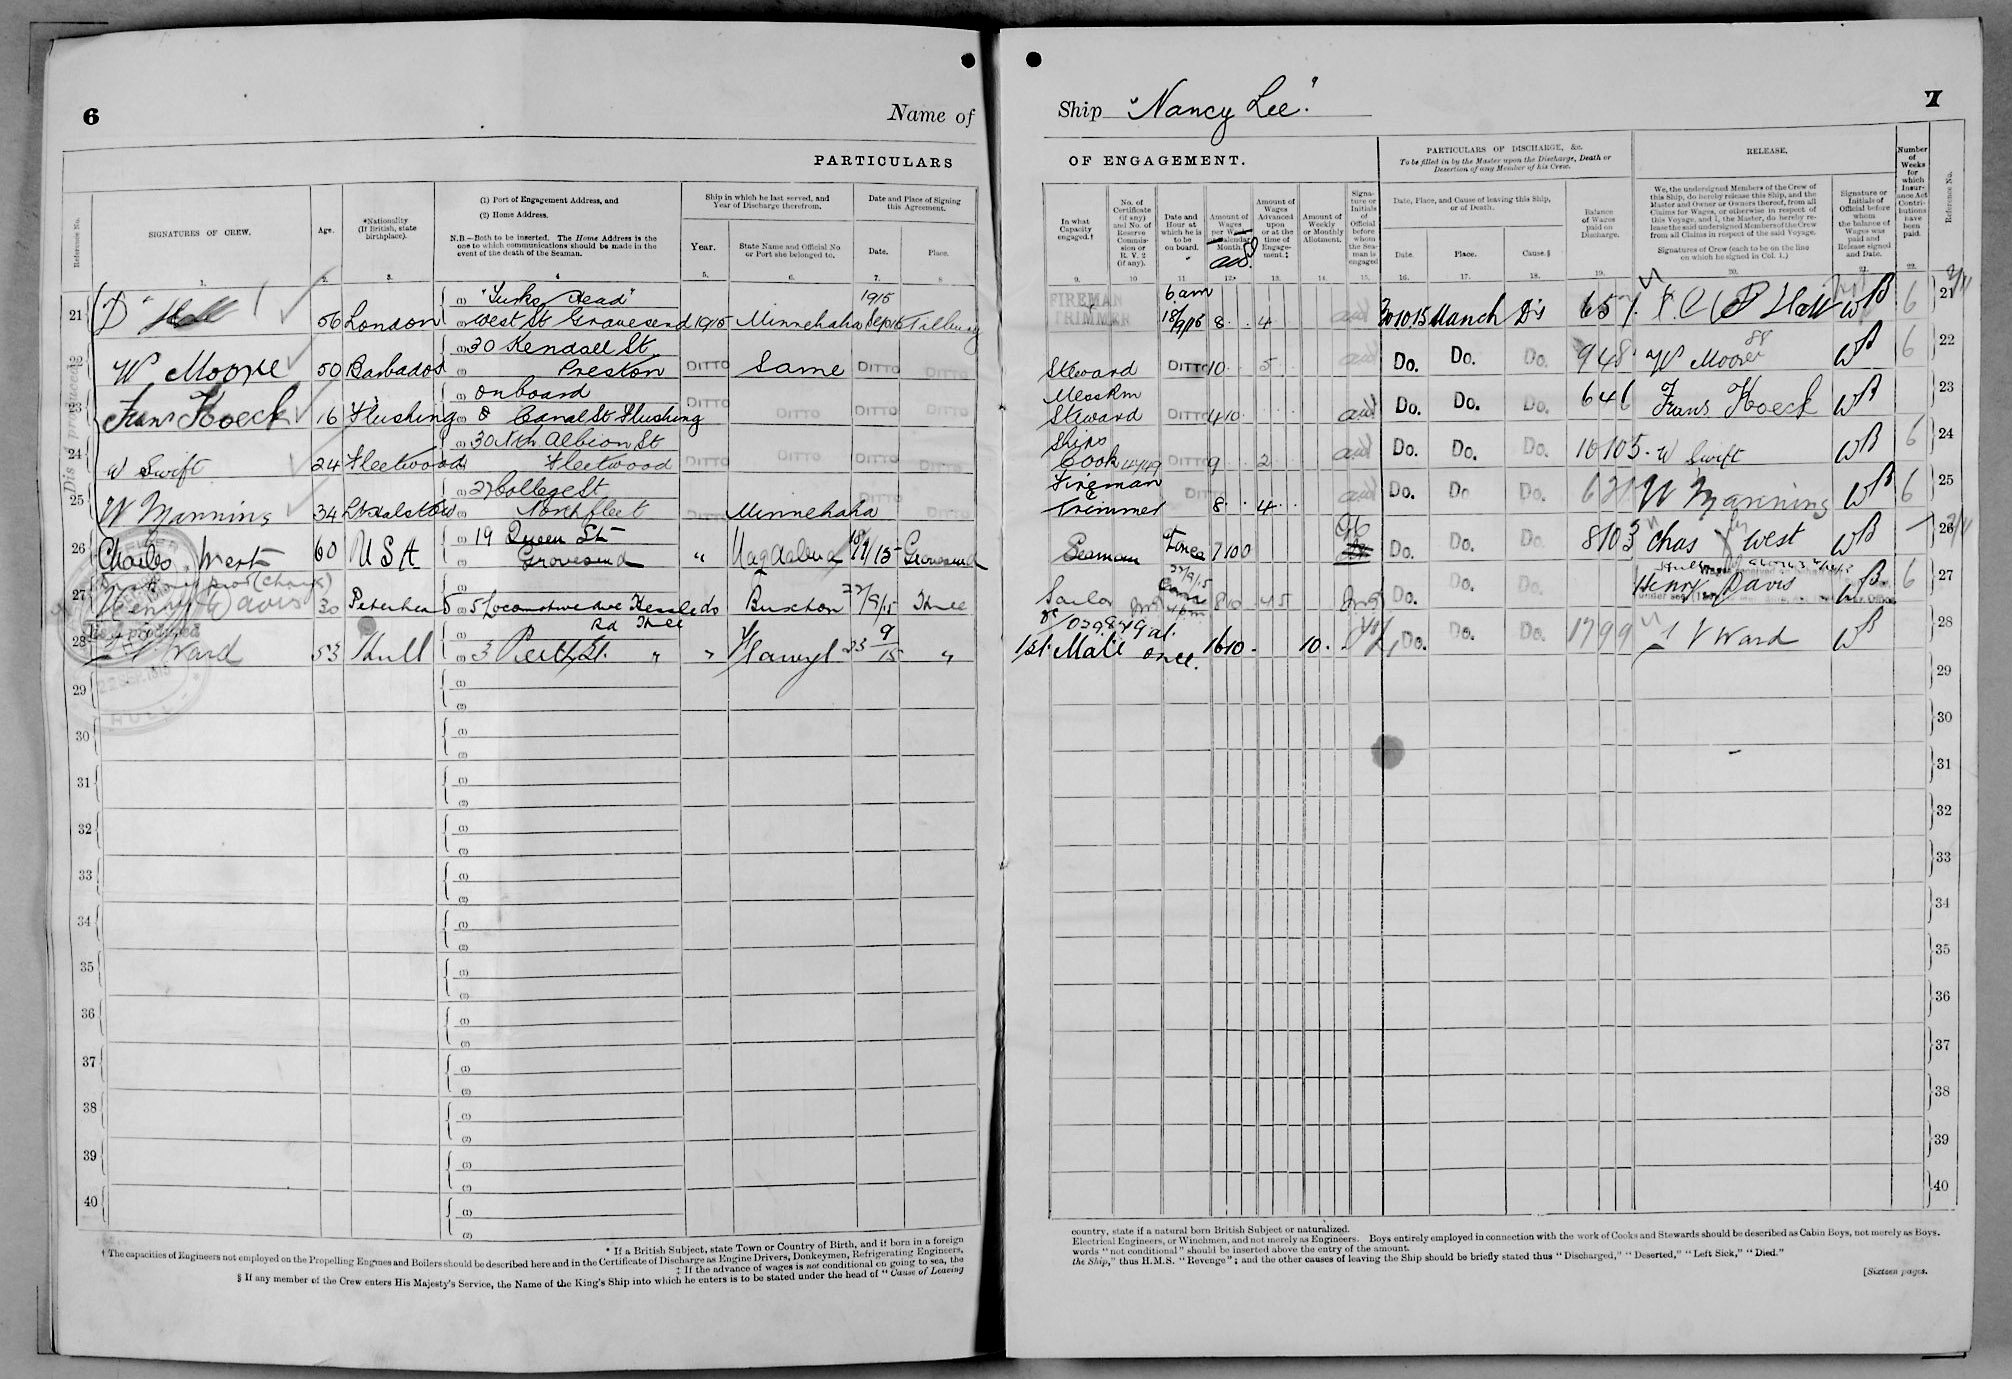 6
Name of
PARTICULARS
Reference No.
SIGNATURES OF CREW.
Age.
*Nationality
(If British, state
birthplace).
(1) Port of Engagement Address, and
(2) Home Address.
N.B.—Both to be inserted. The Home Address is the
one to which communications should be made in the
event of the death of the Seaman.
Ship in which he last served, and
Year of Discharge therefrom.
Year.
State Name and Official No
or Port she belonged to.
Date and Place of Signing
this Agreement.
Date.
Place.
1. 2. 3. 4 5. 6. 7. 8
21 Hall 56 London (1) "Turks Head"
(2) West St Gravesend 1915 Minnehaha 1915 Sep 18 Tilbury
22 W Moore 50 Barbados (1) 30 Kendall St
(2) Preston DITTO Same DITTO DITTO
23 Frans Hoeck 16 Flushing (1) onboard
8 Canal St Flushing DITTO DITTO DITTO DITTO
24 W Swift 24 Fleetwood (1) 30 Nth Albion St
Fleetwood DITTO DITTO DITTO DITTO
25 W Manning 34 (1) 27 College St
(2) Northfleet Minnehaha DITTO DITTO
26 Charles West 60 USA (1) 19 Queen St
Gravesend " 15 Gravesend
27 Henry Davis 30 Peterhead 5 Locomotive Ave Buxton 22/9/15
Dis produced
28 Ward 53 Hull (1)
3 Perth St. " " 23 9/15 "
29 (1)
(2)
30 (1)
(2)
31 (1)
(2)
32 (1)
(2)
33 (1)
(2)
34 (1)
(2)
35 (1)
(2)
36 (1)
(2)
37 (1)
(2)
38 (1)
(2)
39 (1)
(2)
40 (1)
(2)
22 SEP. 1915
HULL
* If a British Subject, state Town or Country of Birth, and if born in a foreign
† The capacities of Engineers not employed on the Propelling Engines and Boilers should be described here and in the Certificate of Discharge as Engine Drivers, Donkeymen, Refrigerating Engineers,
‡ If the advance of wages is not conditional on going to sea, the
§ If any member of the Crew enters His Majesty's Service, the Name of the King's Ship into which he enters is to be stated under the head of "Cause of Leaving
Ship "Nancy Lee".
7
OF ENGAGEMENT.
PARTICULARS OF DISCHARGE, &c.
To be filled in by the Master upon the Discharge, Death or
Desertion of any Member of his Crew.
RELEASE.
Number
of
Weeks
for
which
Insur-
ance Act
Contri-
butions
have
been
paid.
Reference No.
In what
Capacity
engaged.†
No. of
Certificate
(if any)
and No. of
Reserve
Commis-
sion or
R.V. 2
(if any).
Date and
Hour at
which he is
to be
on board.
Amount of
Wages
per Week
Calendar
Month.
Amount of
Wages
Advanced
upon
or at the
time of
Engage-
ment.‡
Amount of
Weekly
or Monthly
Allotment.
Signa-
ture or
Initials
of
Official
before
whom
the Sea-
man is
engaged
Date, Place, and Cause of leaving this Ship,
or of Death.
Date. Place. Cause.§
Balance
of Wages
paid on
Discharge.
We, the undersigned Members of the Crew of
this Ship, do hereby release this Ship, and the
Master and Owner or Owners thereof, from all
Claims for Wages, or otherwise in respect of
this Voyage, and I, the Master, do hereby re-
lease the said undersigned Members of the Crew
from all Claims in respect of the said Voyage.
Signatures of Crew (each to be on the line
on which he signed in Col. 1.)
Signature or
Initials of
Official before
whom
the balance of
Wages was
paid and
Release signed
and Date.
9. 10 11 12. 13. 14. 15. 16. 17. 18. 19. 20. 21. 22.
FIREMAN
TRIMMER 6 am 18/9/15 8 4 30 10 15 Manch Dis 6 5 Hall WB 6 21
Steward DITTO 10 5 Do. Do. Do. 9 4 8 W Moore WB 6 22
Mess Rm
Steward DITTO 4 10 Do. Do. Do. 6 4 6 Frans Hoeck WB 23
Ships
Cook DITTO 9 2 Do. Do. Do. 10 10 5 W Swift WB 6 24
Fireman
Trimmer DITTO 8 4 Do. Do Do. W Manning WB 6 25
Seaman 7 10 0 Do. Do. Do. 8 10 3 Chas West WB 26
Sailor 22/9/15 4 pm 8 10 Do. Do. Do. Henry Davis WB 6 27
029849 at
1st Mate once. 16 10 10. Do. Do. Do. 17 9 9 Ward WB 28
29
30
31
32
33
34
35
36
37
38
39
40
country, state if a natural born British Subject or naturalized.
Electrical Engineers, or Winchmen, and not merely as Engineers. Boys entirely employed in connection with the work of Cooks and Stewards should be described as Cabin Boys, not merely as Boys.
words "not conditional" should be inserted above the entry of the amount.
the Ship," thus H.M.S. "Revenge"; and the other causes of leaving the Ship should be briefly stated thus "Discharged," "Deserted," "Left Sick," "Died."
[Sixteen pages.